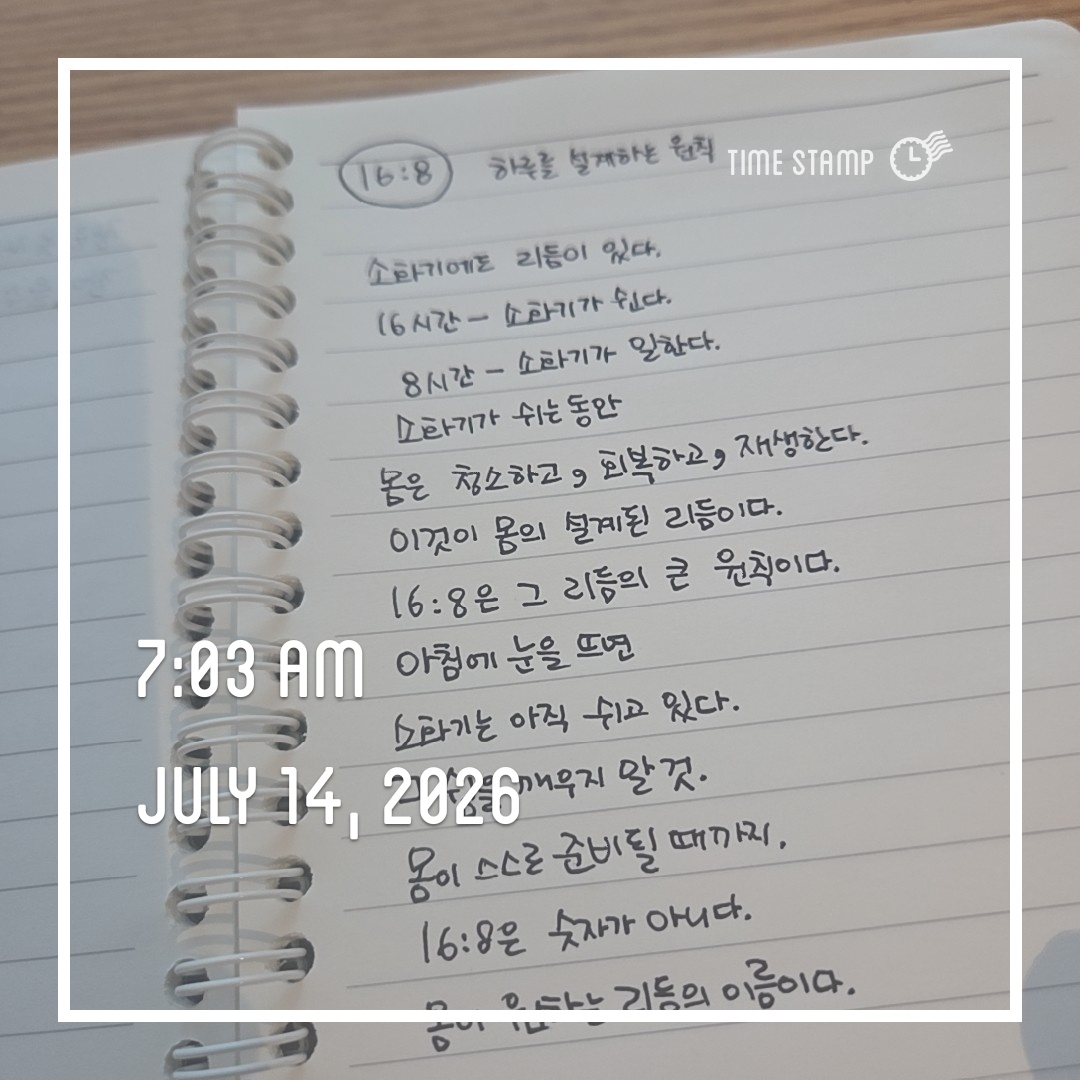 16:8 하루를 설계하는 원칙
TIME STAMP
소화기에도 리듬이 있다.
16시간 - 소화기가 쉰다.
8시간 - 소화기가 일한다.
소화기가 쉬는동안
몸은 청소하고, 회복하고, 재생한다.
이것이 몸의 설계된 리듬이다.
16:8은 그 리듬의 큰 원칙이다.
아침에 눈을 뜨면
소화기는 아직 쉬고 있다.
깨우지 말 것.
몸이 스스로 준비될 때까지.
16:8은 숫자가 아니다.
몸이 원하는 리듬의 이름이다.
7:03 AM
JULY 14, 2026